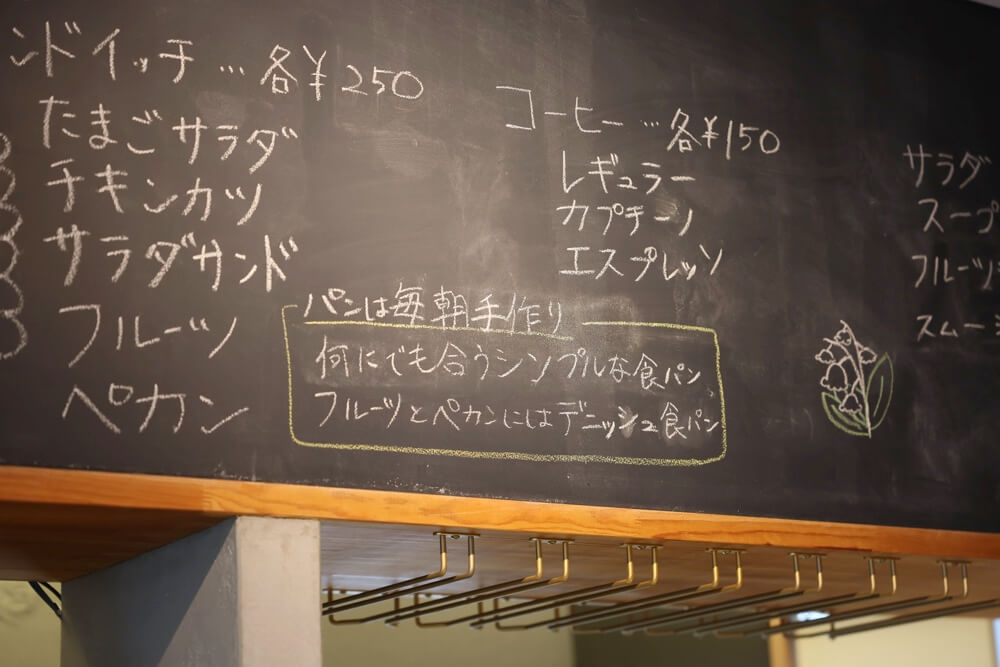 ンドイッチ…各¥250
たまごサラダ
チキンカツ
サラダサンド
フルーツ
ペカン
コーヒー…各¥150
レギュラー
カプチーノ
エスプレッソ
パンは毎朝手作り
何にでも合うシンプルな食パン
フルーツとペカンにはデニッシュ食パン
サラダ
スープ
フルーツ
スムー